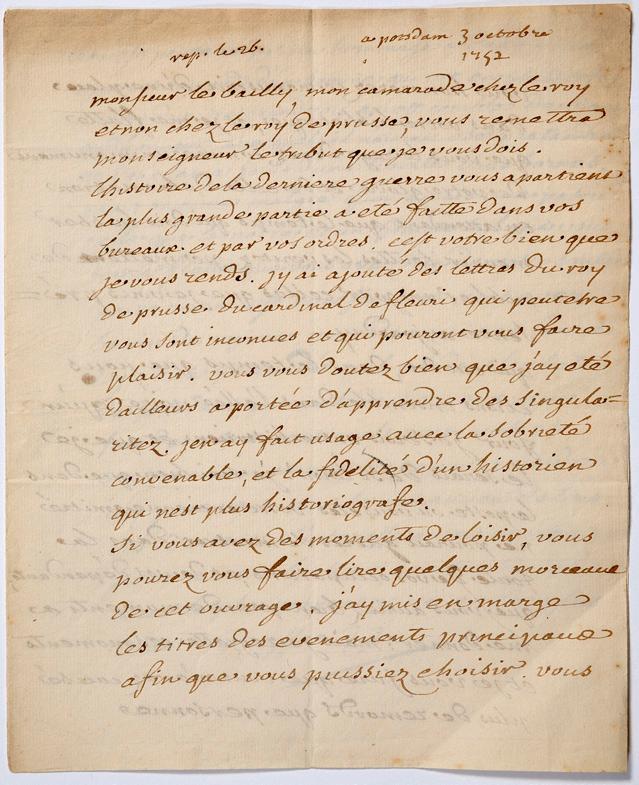 rep. le 26.
a potsdam 3 octobre
1752
monsieur le bailly, mon camarade chez le roy
et non chez le roy de prusse, vous remettra
monseigneur le tribut que je vous dois.
lhistoire de la derniere guerre vous apartient
la plus grande partie a eté faitte dans vos
bureaux et par vos ordres. cest votre bien que
je vous rends. jy ai ajouté des lettres du roy
de prusse du cardinal de fleuri qui peutetre
vous sont inconues et qui pouront vous faire
plaisir. vous vous doutez bien que j'ay eté
dailleurs a portée d'apprendre des singula=
ritez. jen ay fait usage avec la sobrieté
convenable, et la fidelité d'un historien
qui nest plus historiografe.
Si vous avez des moments de loisir, vous
pourez vous faire lire quelques morceaux
de cet ouvrage. j'ay mis en marge
les titres des evenements principaux
afin que vous puissiez choisir. vous